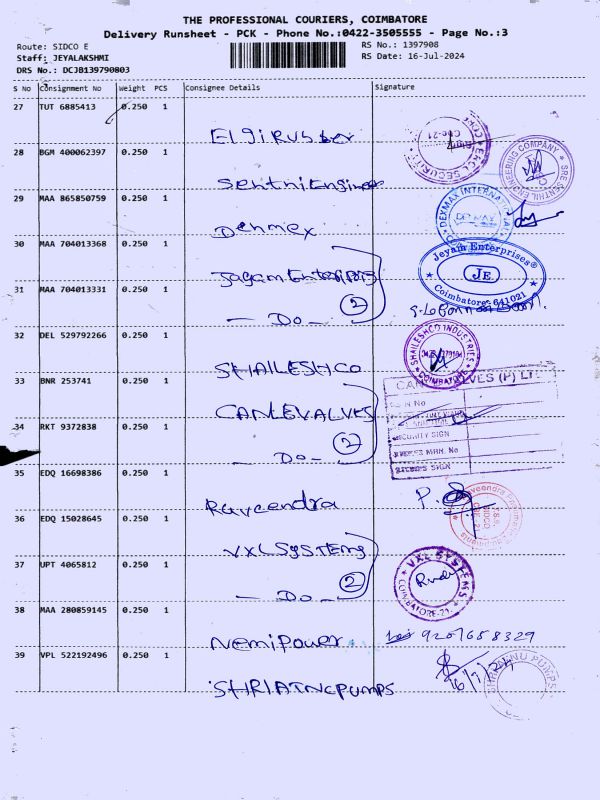 THE PROFESSIONAL COURIERS, COIMBATORE
Delivery Runsheet - PCK - Phone No.:0422-3505555 - Page No.:3
Route: SIDCO E
RS No.: 1397908
Staff: JEYALAKSHMI
RS Date: 16-Jul-2024
DRS No.: DCJB139790803
S No Consignment No Weight PCS Consignee Details Signature
27 TUT 6885413 0.250 1
28 BGM 400062397 0.250 1
29 MAA 865850759 0.250 1
Denmex
DEXMAX INTERNATIONAL
30 MAA 704013368 0.250 1
Jeyam Enterprises®
JE
Coimbatore-641021
31 MAA 704013331 0.250 1
- Do - 2
32 DEL 529792266 0.250 1
SHAILESHCO
SHAILESHCO INDUSTRIES
COIMBATORE
33 BNR 253741 0.250 1
CANLEVALVES
34 RKT 9372838 0.250 1
- Do - 2
SECURITY SIGN
35 EDQ 16698386 0.250 1
Raveendra
P.
36 EDQ 15028645 0.250 1
VXL SYSTEMS
37 UPT 4065812 0.250 1
- Do - 2
VXL SYSTEMS
COIMBATORE-21.
38 MAA 280859145 0.250 1
Nemipower
39 VPL 522192496 0.250 1
16/7/24